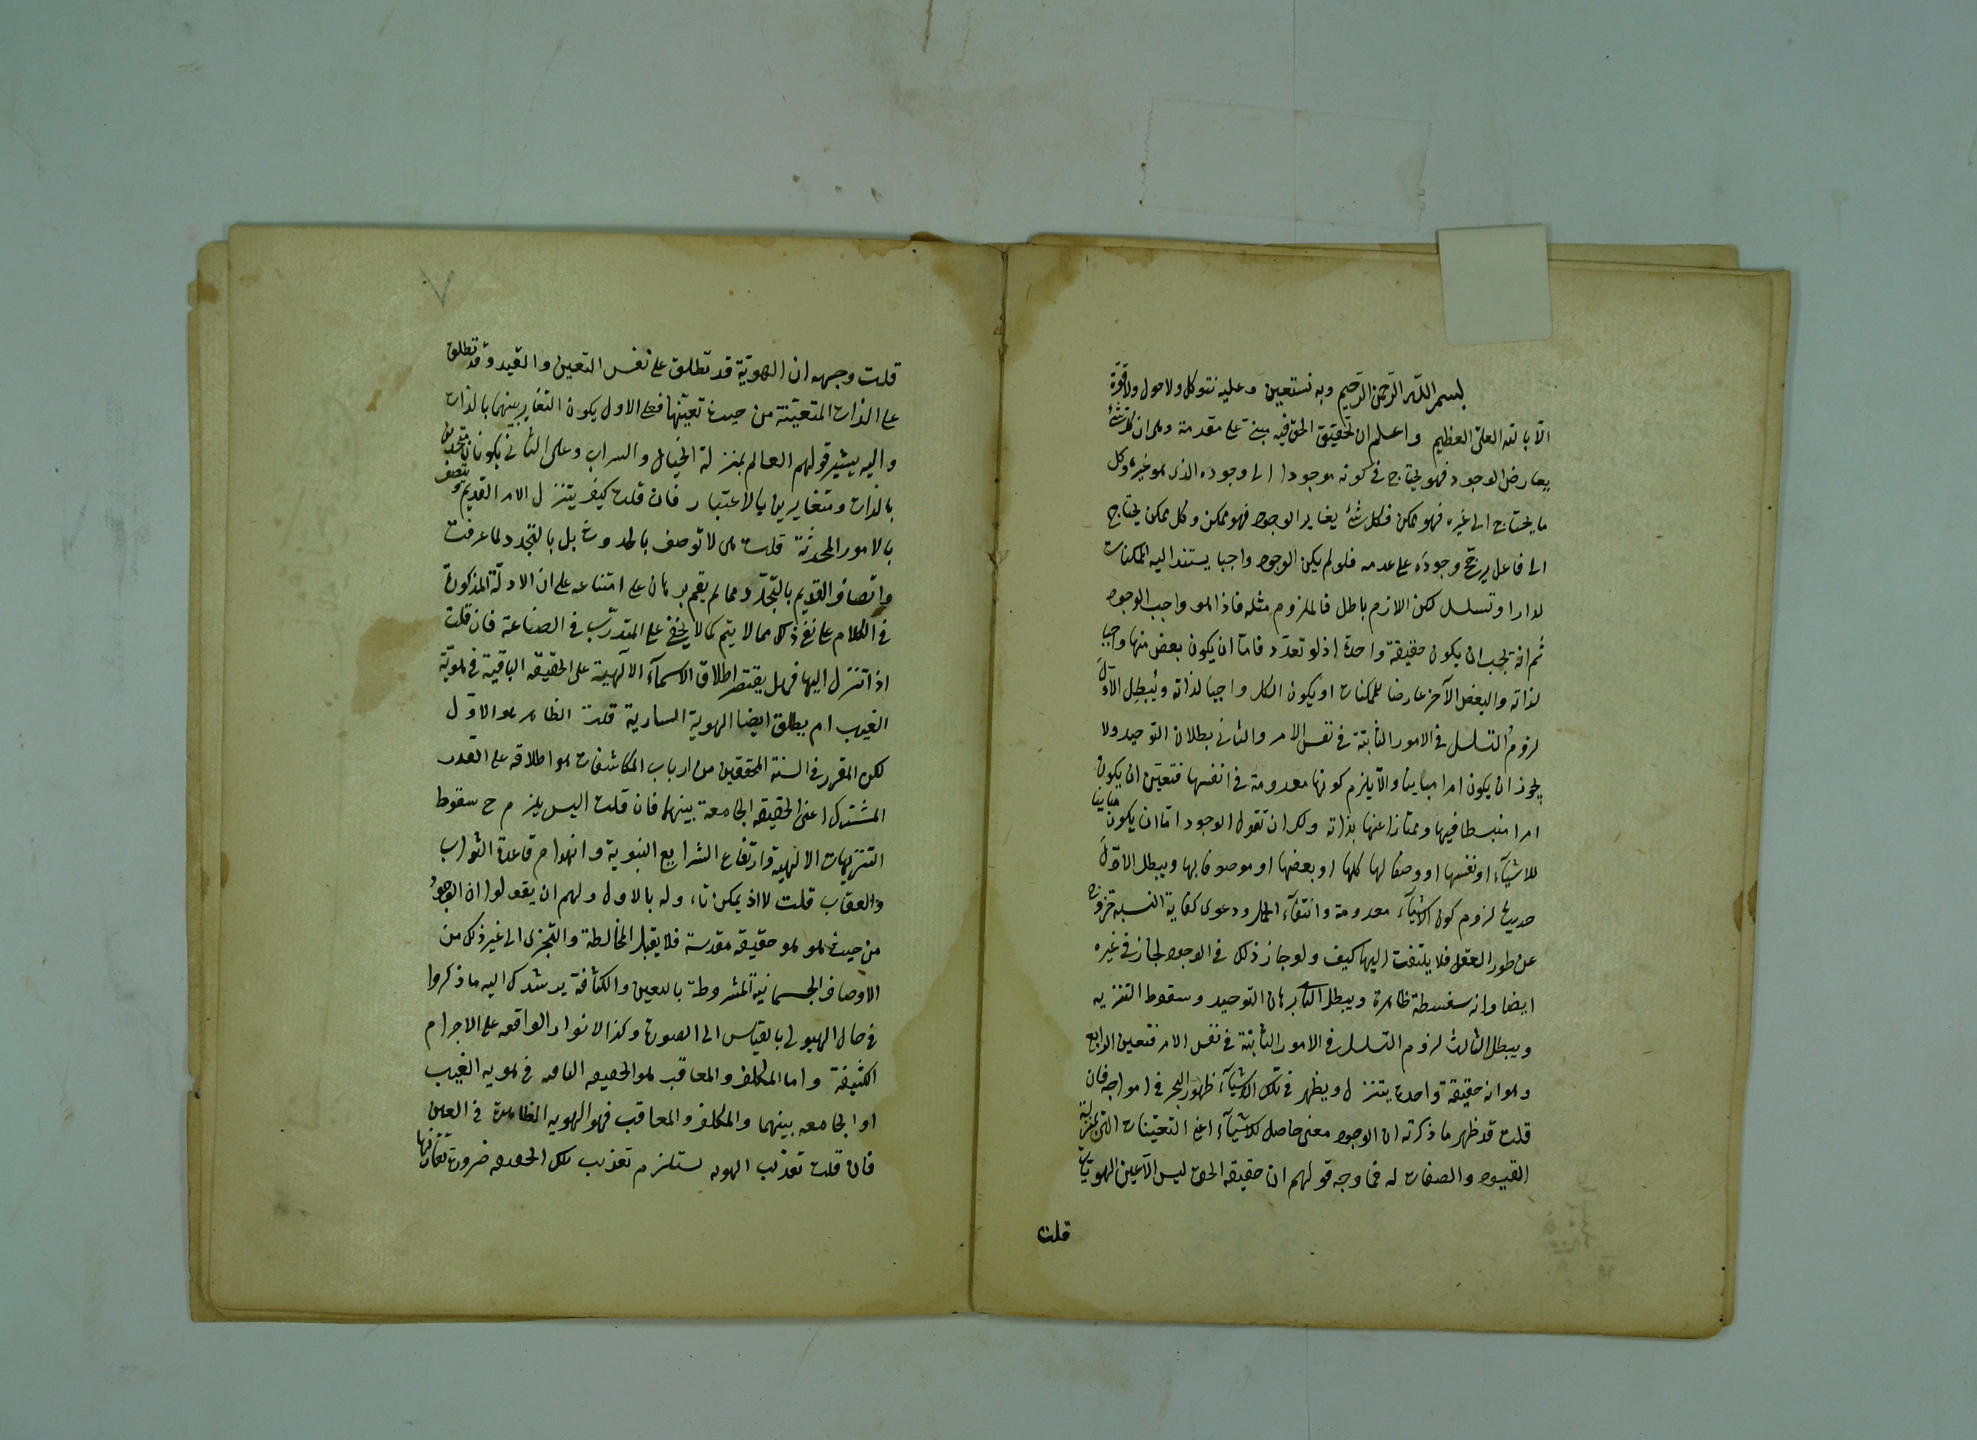 بسم اللّه الرّحمن الرّحيم وبه نستعين وعليه نتوكل ولا حول ولا قوّة
الّا باللّه العلىّ العظيم واعلم ان تحقيق الحق فيه مبنىّ على مقدمة وهى ان كل شئ
يعارض الوجود فهو يحتاج فى كونه موجودا الى وجوده الذى هو غيره وكل
ما يحتاج الى غيره فهو ممكن فكل شئ يغاير الوجود فهو ممكن وكل ممكن يحتاج
الى فاعل يرجّح وجوده على عدمه فلو لم يكن الوجود واجبا يستند اليه الممكنات
لدار او تسلسل لكن اللازم باطل فالملزوم مثله فاذا هو واجب الوجود
ثم انه يجب ان يكون حقيقة واحدة اذ لو تعدّد فامّا ان يكون بعض منها واجبا
لذاته والبعض الآخر عارضا للممكنات او يكون الكل واجبا لذاته ويُبطِل الاوّلَ
لزومُ التسلسل فى الامور الثابتة فى نفس الامر والثانى بطلان التوحيد ولا
يجوز ان يكون امرا مباينا والّا يلزم كونها معدومة فى انفسها فتعيّن ان يكون
امرا منبسطا فيها وممتازا عنها بذاته ولك ان تقول الوجود امّا ان يكون مباينا
للاشيآء او نفسها او وصفا لها كلها او بعضها او موصوفا بها ويبطل الاوّلَ
صريحا لزوم كون الاشيآء معدومة وانتفآء الحمل ودعوى كفاية النسبة خروج
عن طور العقل فلا يلتفت اليها كيف ولو جاز ذلك فى الوجود لجاز فى غيره
ايضا وانه سفسطة ظاهرة ويبطل الثانى برهان التوحيد وسقوط التنزيه
ويبطل الثالث لزوم التسلسل فى الامور الثابتة فى نفس الامر فتعين الرابع
وهو انه حقيقة واحدة يتنزل ويظهر فى تلك الاشيآء ظهور البحر فى امواجه فان
قلت قد ظهر مما ذكرته ان الوجود معنى حاصل للاشيآء اعنى التعيّنات التى بمنزلة
القيود والصفات له فما وجه قولهم ان حقيقة الحق ليس الّا عين الهويّات
قلت
قلت وجهه ان الهويّة قد تطلق على نفس التعين والقيد وقد تطلق
على الذات المتعيّنة من حيث تعيّنها فعلى الاول يكون التغاير بينهما بالذات
واليه يشير قولهم العالم بمنزلة الخيال والسراب وعلى الثانى يكونان متحدين
بالذات ومتغايرين بالاعتبار فان قلت كيف يتنزل الامر القديم ويتصف
بالامور المحدثة قلت هى لا توصف بالحدوث بل بالتجدد لما عرفت
واتّصاف القديم بالتجدّد مما لم يقم برهان على امتناعه على ان الادلّة المذكورة
فى الكلام على نفى ذلك مما لا يتم كما لا يخفى على المتدرّب فى الصناعة فان قلت
اذا تنزل اليها فهل يقتصر اطلاق الاسمآء الالهية على الحقيقة الباقية فى هويّة
الغيب ام يطلق ايضا الهوية السارية قلت الظاهر هو الاوّل
لكن المقرر فى السنة المحققين من ارباب المكاشفات هو اطلاقه على القدر
المشترك اعنى الحقيقة الجامعة بينهما فان قلت اليس يلزم ح سقوط
التنزيهات الالهية وارتفاع الشرايع النبوية وانهدام قاعدة الثواب
والعقاب قلت لا اذ يمكن تاءوله بالاول ولهم ان يقولوا ان الوجود
من حيث هو هو حقيقة مقدسة فلا يقبل المخالطة والتجزى الى غير ذلك من
الاوصاف الجسمانية المشروطة بالتعين والكثافة يرشدك اليه ما ذكروا
فى حال الهيولى بالقياس الى الصورة وكذا الانوار الواقعة على الاجرام
الكثيفة واما المكلف والمعاقب هو الحقيقة الباقية فى هوية الغيب
او الجامعة بينهما والمكلف والمعاقب فهو الهوية الظاهرة فى العين
فان قلت تعذيب الهوية يستلزم تعذيب تلك الحقيقة ضرورة تقارنها